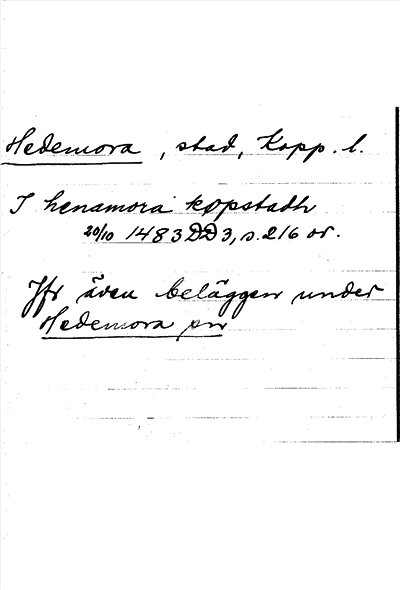 Hedemora, stad, Kopp. l.
I henamora køpstadh
20/10 1483 DD3, s. 216 or.
Jfr även beläggen under
Hedemora sn